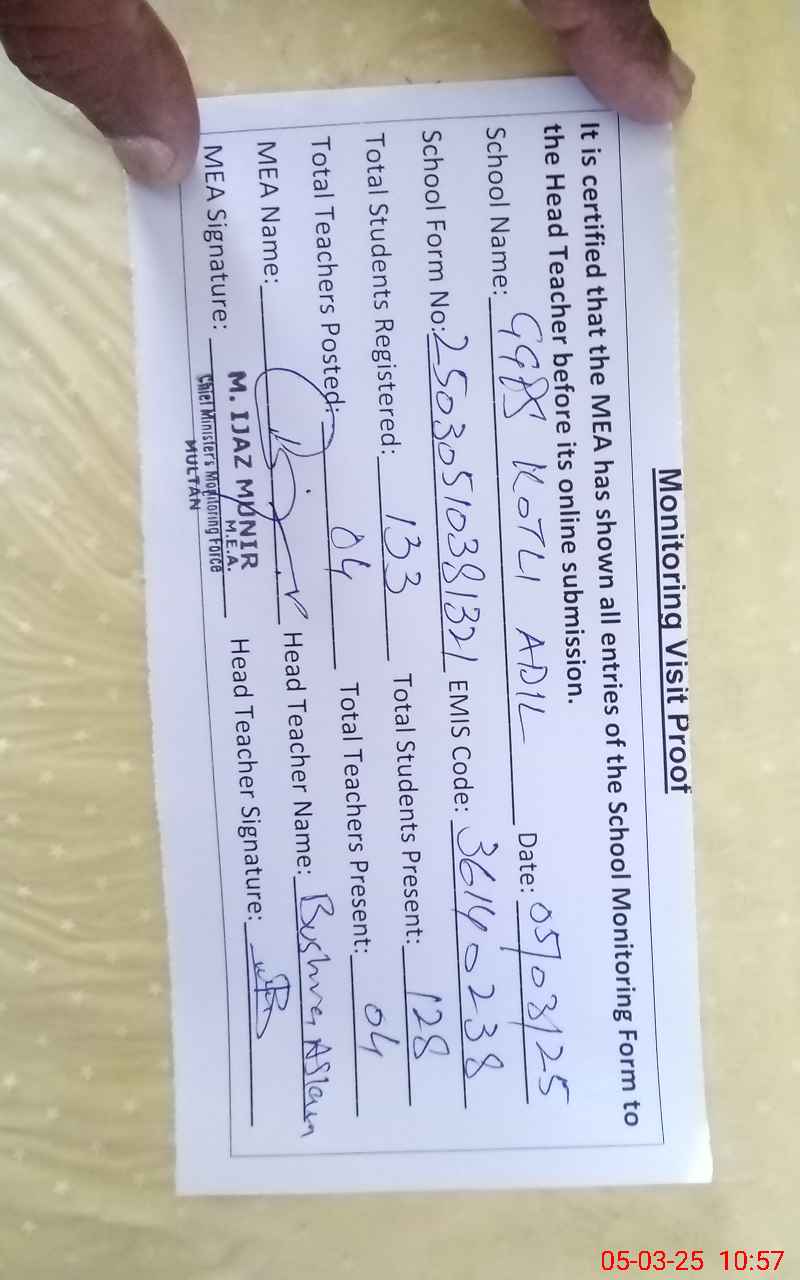 Monitoring Visit Proof
It is certified that the MEA has shown all entries of the School Monitoring Form to
the Head Teacher before its online submission.
School Name: GGPS KOTLI ADIL Date: 05/03/25
School Form No: 25030510381321 EMIS Code: 36140238
Total Students Registered: 133 Total Students Present: 128
Total Teachers Posted: 04 Total Teachers Present: 04
MEA Name: Head Teacher Name: Bushra Aslam
MEA Signature: Head Teacher Signature:
M. IJAZ MUNIR
M.E.A.
Chief Minister's Monitoring Force
MULTAN
05-03-25 10:57